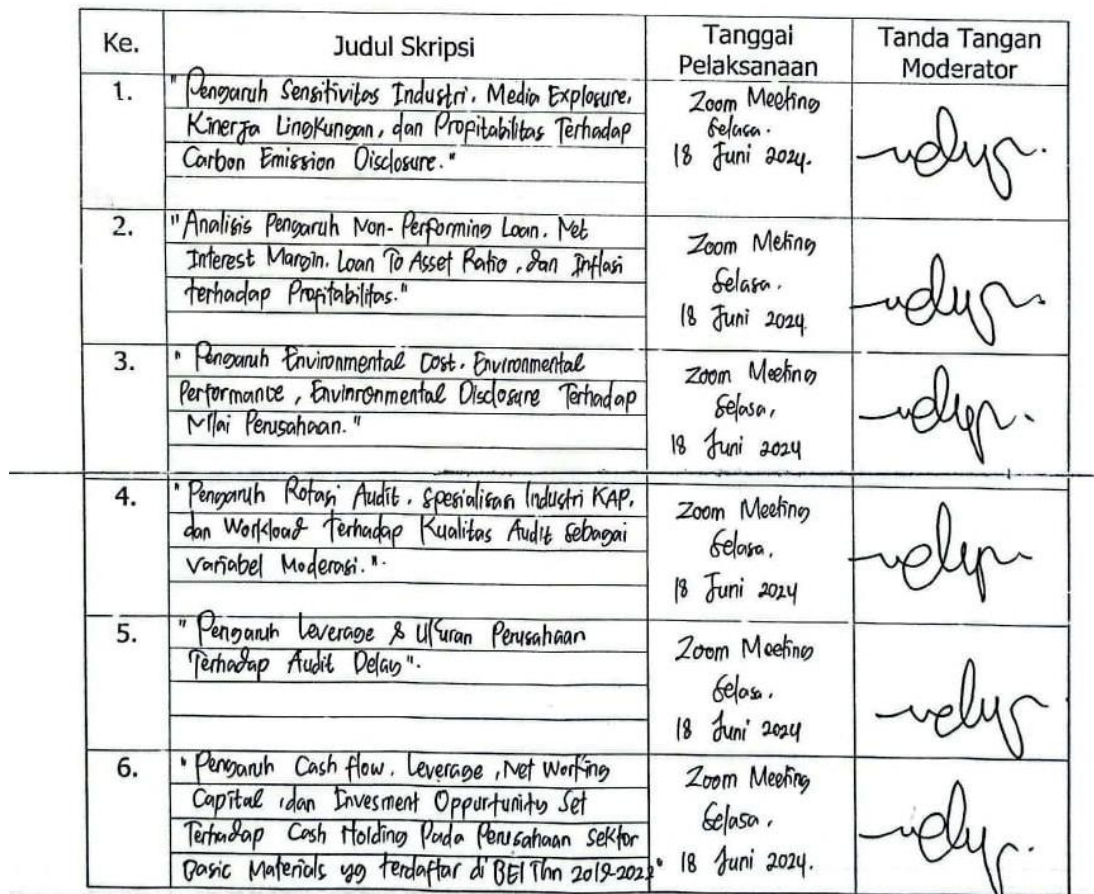 Ke.
Judul Skripsi
Tanggai
Pelaksanaan
Tanda Tangan
Moderator
1.
" Pengaruh Sensitivitas Industri, Media Explosure,
Kinerja Lingkungan, dan Propitabilitas Terhadap
Carbon Emission Disclosure."
Zoom Meeting
Selasa.
18 Juni 2024.
2.
"Analisis Pengaruh Non-Performing Loan, Net
Interest Margin, Loan To Asset Ratio, dan Inflasi
terhadap Propitabilitas."
Zoom Meting
Selasa.
18 Juni 2024
3.
" Pengaruh Environmental Cost, Environmental
Performance, Envinronmental Disclosure Terhadap
Nilai Perusahaan."
Zoom Meeting
Selasa,
18 Juni 2024
4.
" Pengaruh Rotasi Audit, Spesialisasi Industri KAP,
dan Workload Terhadap Kualitas Audit Sebagai
Variabel Moderasi.".
Zoom Meeting
Selasa,
18 Juni 2024
5.
" Pengaruh Leverage & Ukuran Perusahaan
Terhadap Audit Delay".
Zoom Meeting
Selasa.
18 Juni 2024
6.
" Pengaruh Cash flow, Leverage, Net Working
Capital, dan Invesment Oppurtunity Set
Terhadap Cash Holding Pada Perusahaan Sektor
Basic Materials yg terdaftar di BEI Thn 2019-2022"
Zoom Meeting
Selasa,
18 Juni 2024.